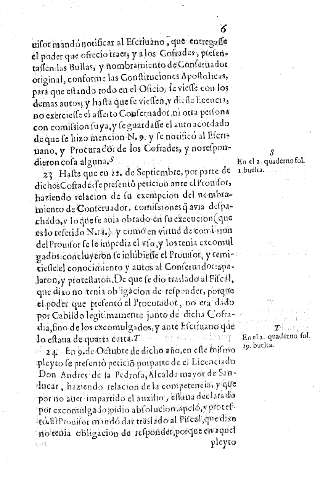 6
uisor mandó notificar al Escriuano, que entregasse
el poder que ofrecio traer, y a los Cofrades, presen-
tassen las Bullas, y nombramiento de Conseruador
original, conforme las Constituciones Apostolicas,
para que estando todo en el Oficio, se viesse con los
demas autos, y hasta que se viessen, y diesse licencia,
no exerciesse el asserto Conseruador, ni otra persona
con comission suya, y se guardasse el auto acordado
de que se hizo mencion N. 9. y se notificó al Escri-
uano, y Procurador de los Cofrades, y no respon-
dieron cosa alguna. S
S
En el 2. quaderno fol.
1. buelta.
23 Hasta que en 22. de Septiembre, por parte de
dichos Cofrades se presentó peticion ante el Prouisor,
haziendo relacion de su exempcion del nombra-
miento de Conseruador, comissiones q̃ avia despa-
chado, y lo que se auia obrado en su execucion (que
es lo referido N.18.) y como en virtud de comission
del Prouisor se le impedia el vso, y los tenia excomul
gados: concluyeron se inhibiesse el Prouisor, y remi-
tiesse el conocimiento y autos al Conseruador: apa-
laron, y protestaron. De que se dio traslado al Fiscal,
que dixo no tenia obligacion de responder, porque
el poder que presentó el Procurador, no era dado
por Cabildo legitimamente junto de dicha Cofra-
dia, sino de los excomulgados, y ante Escriuano que
lo estaua de quarta carta. T
T
En el 2. quaderno fol.
19. buelta.
24 En 9. de Octubre de dicho año, en este mismo
pleyto se presentó peticiõ por parte de el Licenciado
Don Andres de la Pedrosa, Alcalde mayor de San-
lucar, haziendo relacion de la competencia, y que
por no auer impartido el auxilio, estaua declarado
por excomulgado: pidio absolucion, apeló, y protes-
tó. El Prouisor mandó dar traslado al Fiscal, que dixo
no tenia obligacion de responder, porque en aquel
pleyto